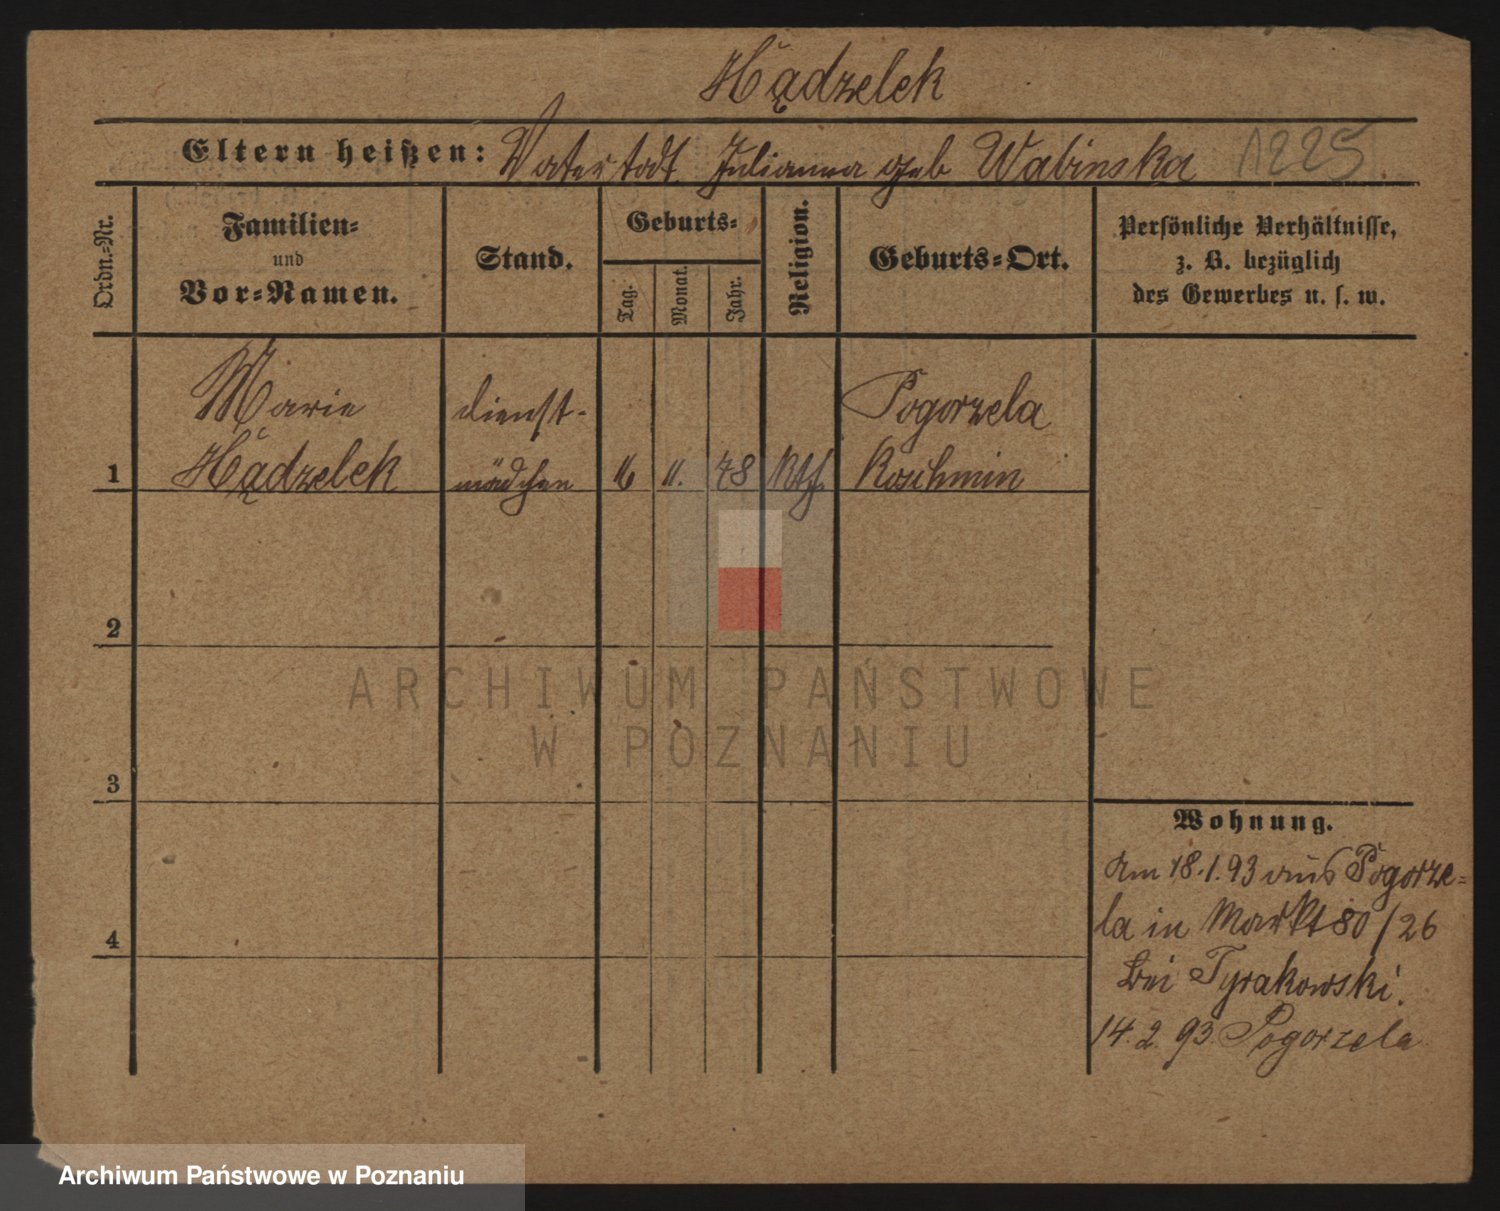 Hądzelek
Eltern heißen: Vater todt. Julianna geb Wabinska 1225
Ordn.-Nr.
Familien-
und
Vor-Namen.
Stand.
Geburts-
Tag.
Monat.
Jahr.
Religion.
Geburts-Ort.
Persönliche Verhältnisse,
z. B. bezüglich
des Gewerbes u. s. w.
Marie
Hądzelek
dienst-
mädchen
11. 78 Kth.
Pogorzela
Koschmin
1
2
3
4
ARCHIWUM PAŃSTWOWE
W POZNANIU
Wohnung.
Am 18.1.93 aus Pogorze-
la in Markt 80/26
bei Tyrakowski.
14.2.93. Pogorzela
Archiwum Państwowe w Poznaniu